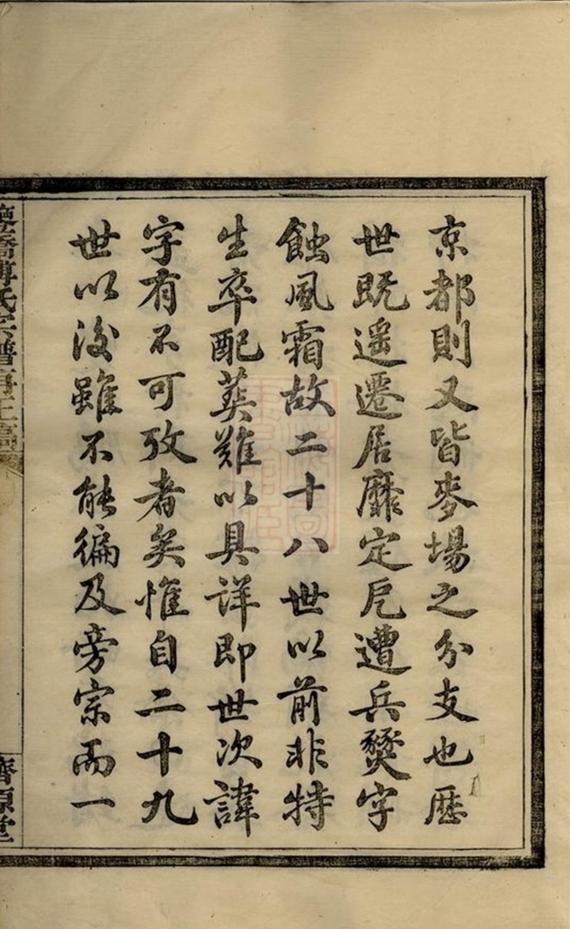 京都則又皆麥場之分支也歷
世既遥遷居靡定戹遭兵燹字
蝕風霜故二十八世以前非特
生卒配葬難以具詳即世次諱
字有不可攷者矣惟自二十九
世以後雖不能徧及旁宗而一